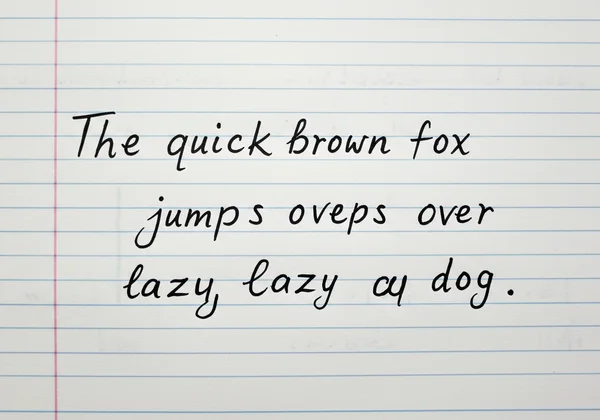 The quick brown fox
jumps oveps over
lazy, lazy cy dog.